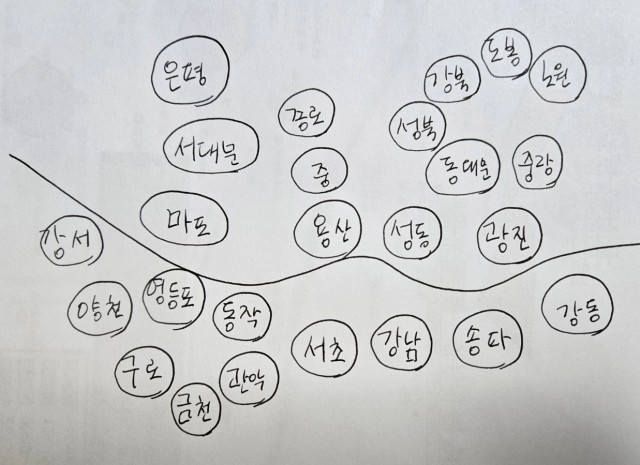 은평
서대문
마포
종로
중
용산
도봉
강북
노원
성북
동대문
중랑
성동
광진
강서
양천
영등포
동작
구로
금천
관악
서초
강남
송파
강동